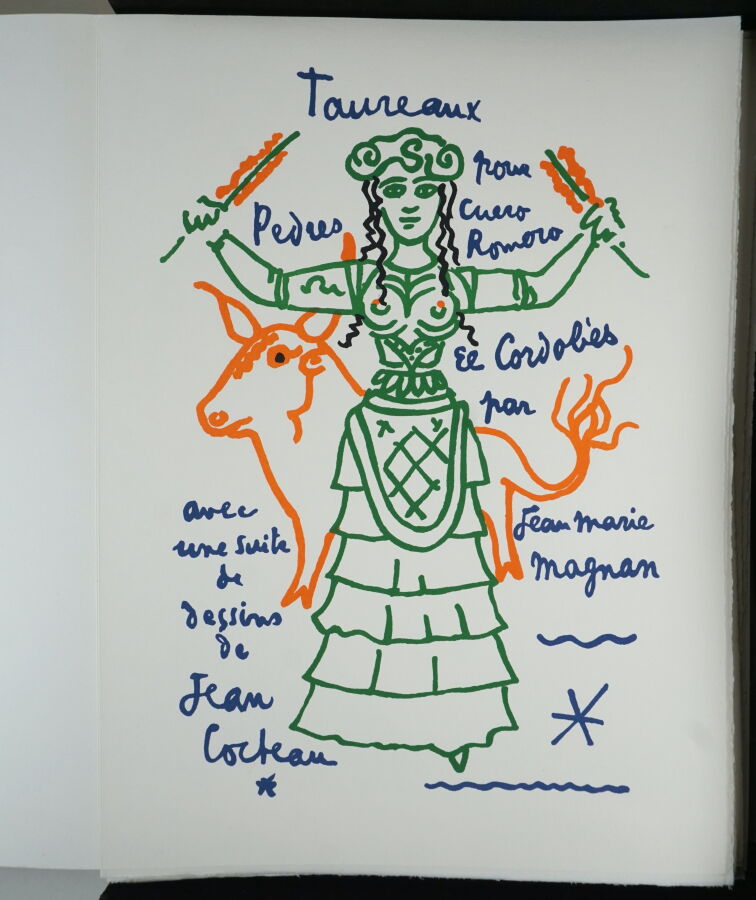 Taureaux
pour
Pedres
Cuero
Romero
El Cordobés
par
Jean Marie
Magnan
avec
une suite
de
dessins
de
Jean
Cocteau